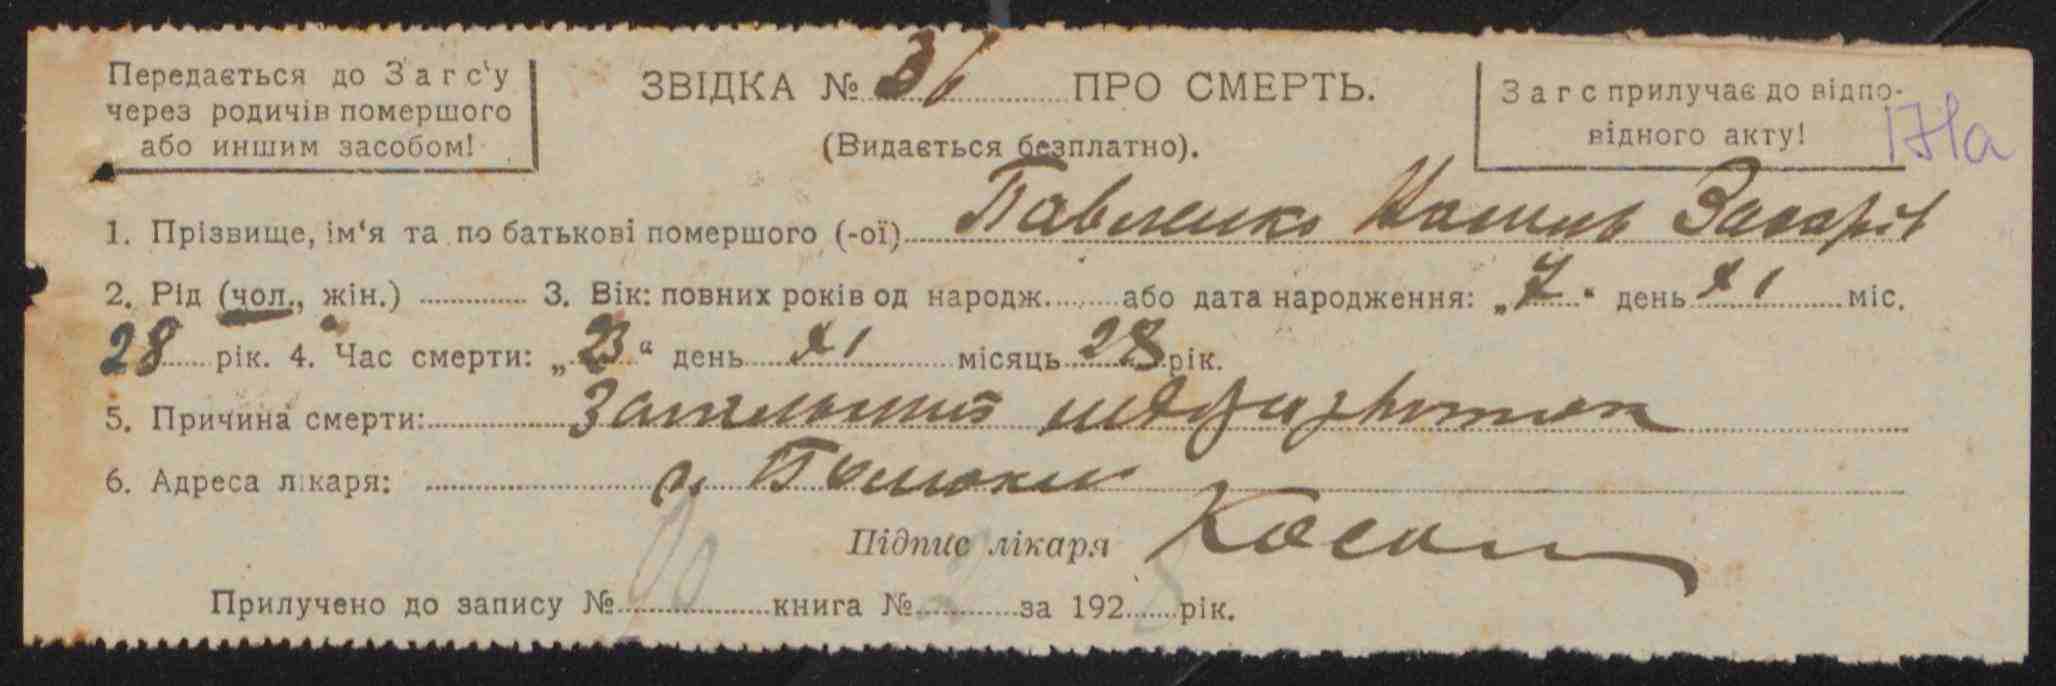 Передається до Загс'у
через родичів помершого
або иншим засобом!
ЗВІДКА № 36 ПРО СМЕРТЬ.
(Видається безплатно).
Загс прилучає до відпо-
відного акту!
171а
1. Прізвище, ім'я та по батькові помершого (-ої) Павленко
2. Рід (чол., жін.) 3. Вік: повних років од народж. або дата народження: „7" день XI міс.
28 рік. 4. Час смерти: „23" день XI місяць 28 рік.
5. Причина смерти:
6. Адреса лікаря:
Підпис лікаря
Прилучено до запису № 90 книга № 2 за 1928 рік.